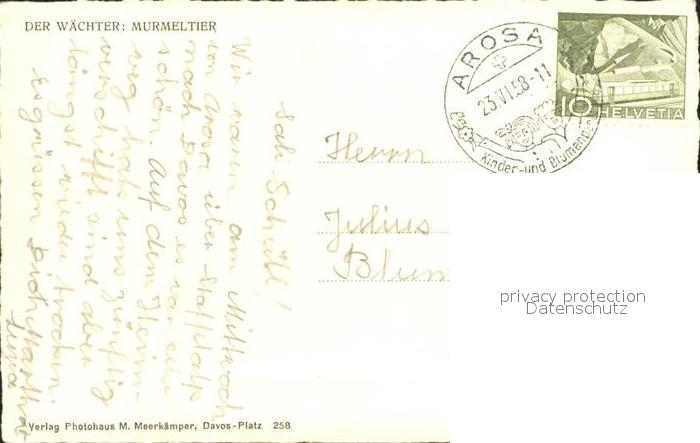 DER WÄCHTER: MURMELTIER
AROSA
23.VI.58-11
Kinder-und Blumenpa
10 HELVETIA
Wir waren am Mittwoch
von Arosa über Staffelalp
nach Davos es war sehr
schön. Auf dem Heim-
weg hats uns zünftig
verschifft sind aber
längst wieder trocken.
Es grüssen Dich Martha
Herrn
Julius
Blum
privacy protection
Datenschutz
Verlag Photohaus M. Meerkämper, Davos-Platz 258